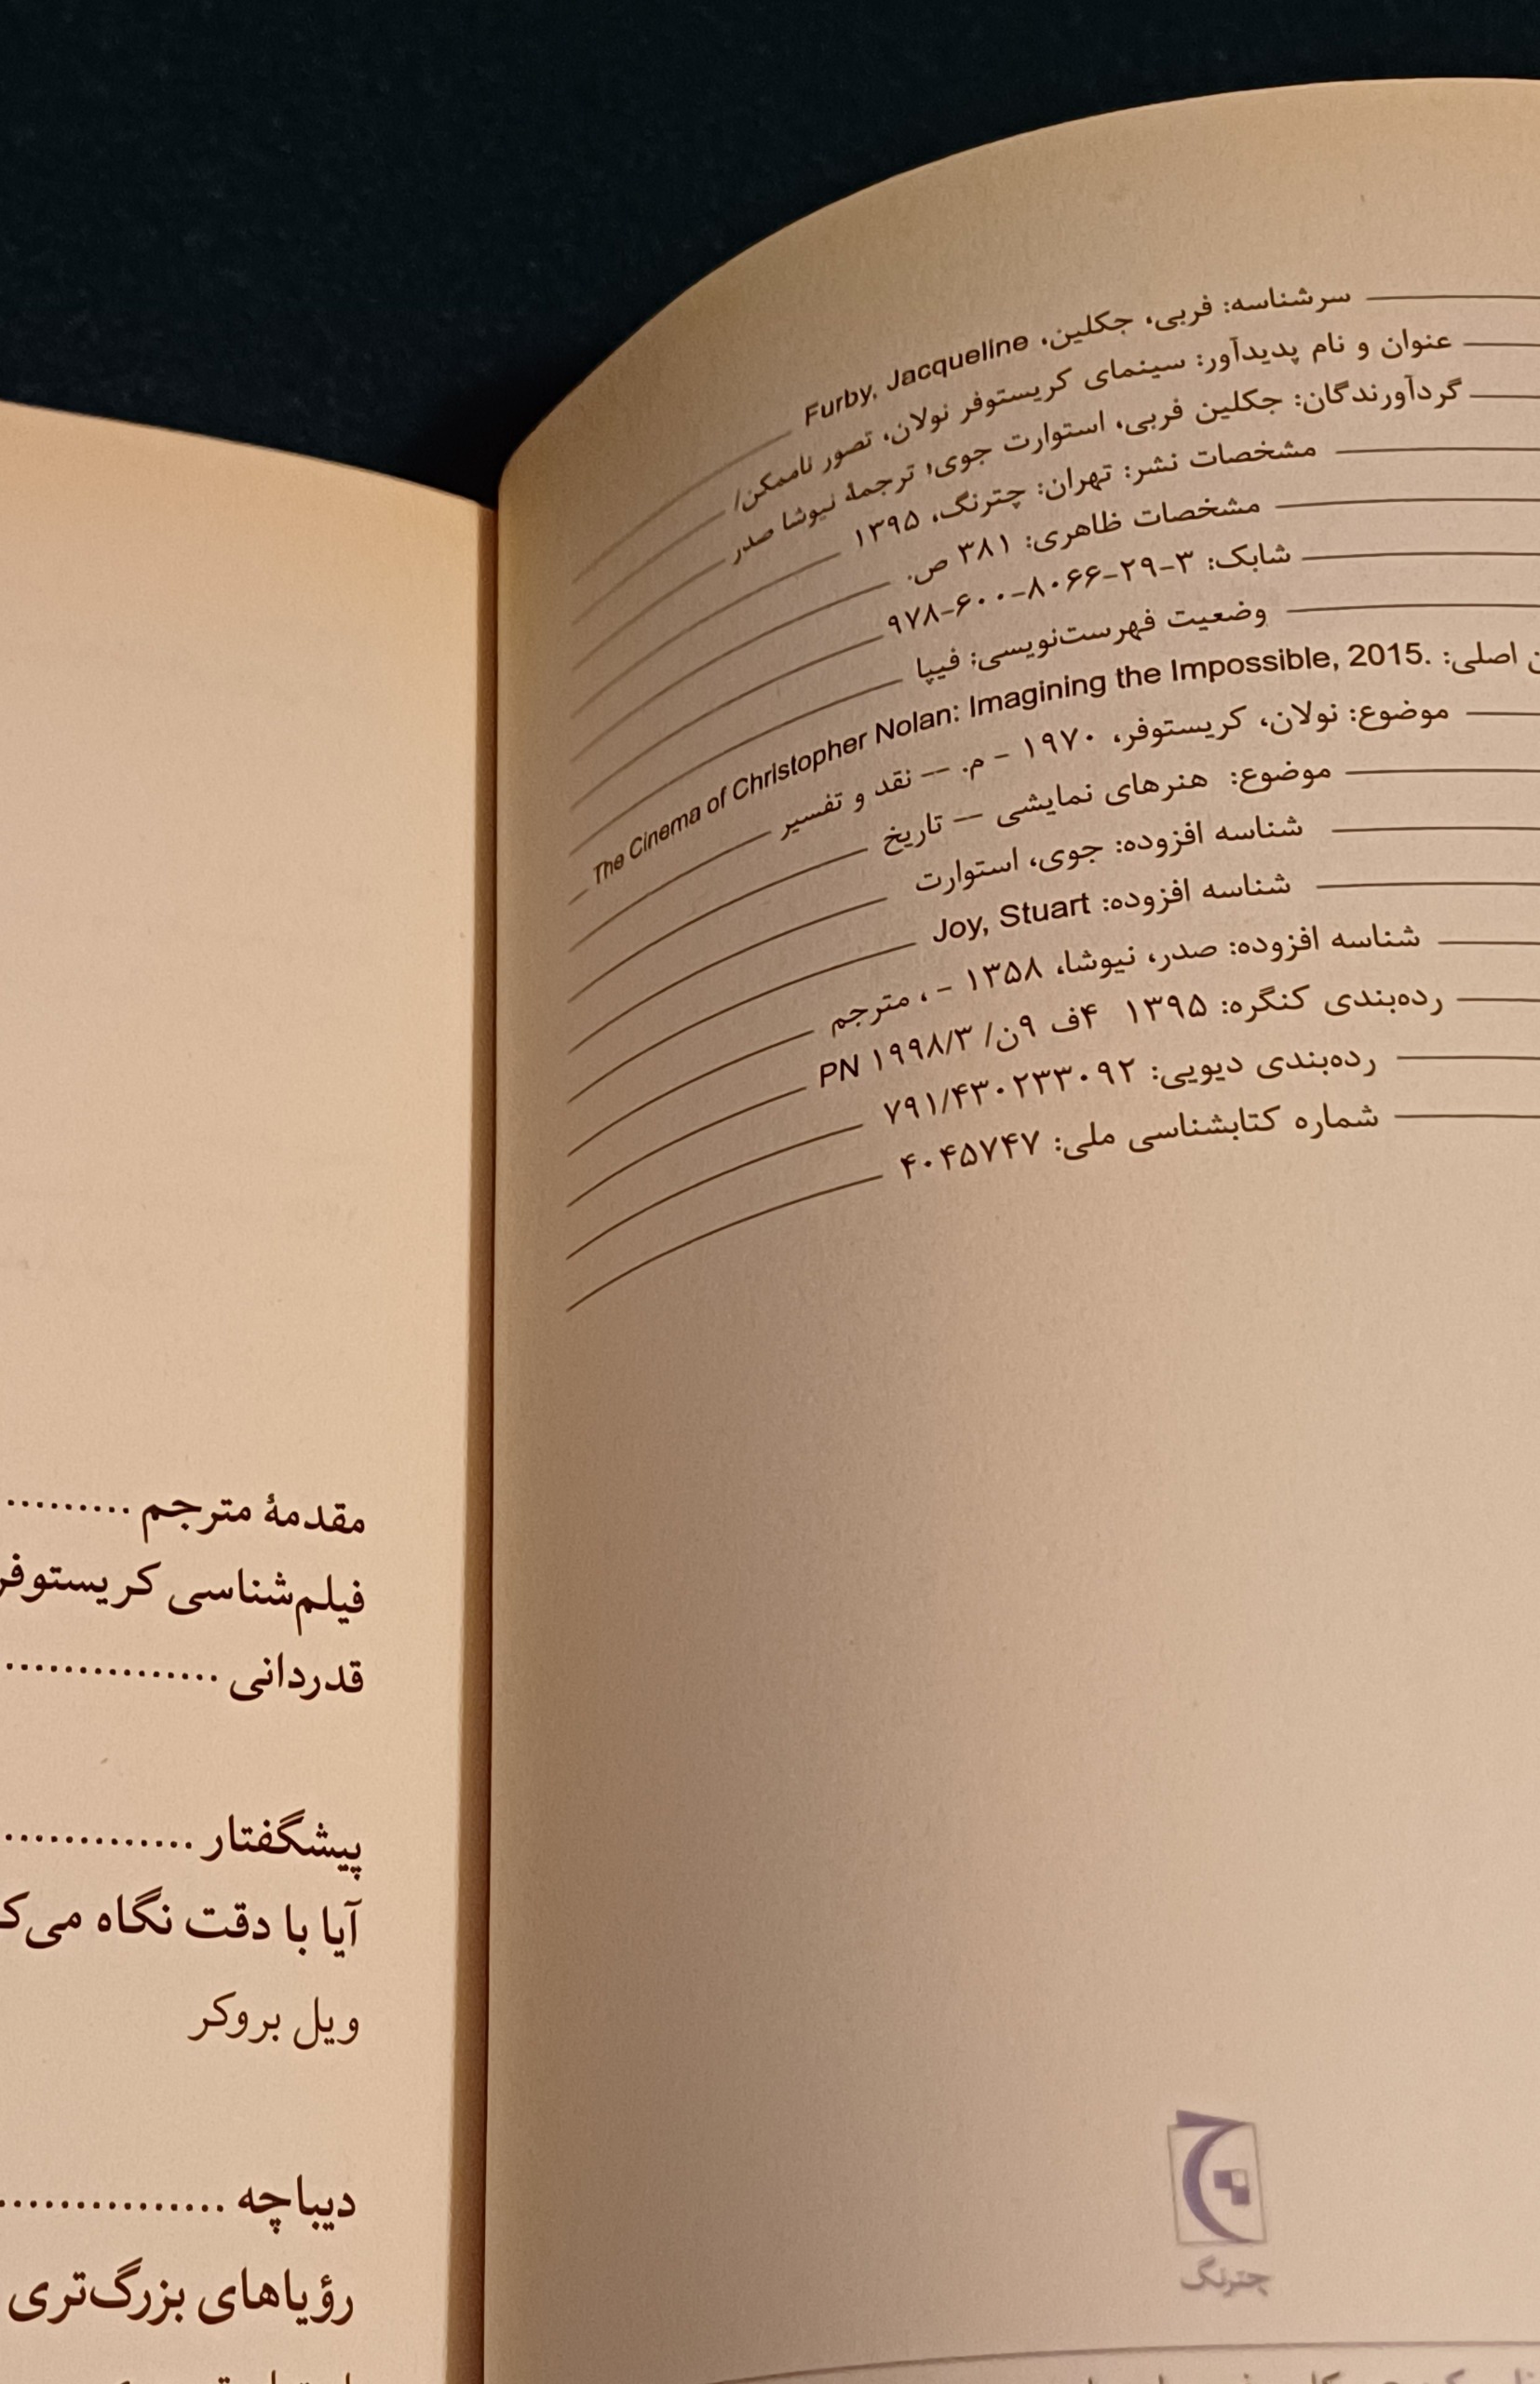 سرشناسه: فربی، جکلین، Furby, Jacqueline
عنوان و نام پدیدآور: سینمای کریستوفر نولان، تصور ناممکن/
گردآورندگان: جکلین فربی، استوارت جوی؛ ترجمهٔ نیوشا صدر
مشخصات نشر: تهران: چترنگ، ۱۳۹۵
مشخصات ظاهری: ۳۸۱ ص.
شابک: ۹۷۸-۶۰۰-۸۰۶۶-۲۹-۳
وضعیت فهرست‌نویسی: فیپا
اصلی: The Cinema of Christopher Nolan: Imagining the Impossible, 2015.
موضوع: نولان، کریستوفر، ۱۹۷۰ - م. -- نقد و تفسیر
موضوع: هنرهای نمایشی -- تاریخ
شناسه افزوده: جوی، استوارت
شناسه افزوده: Joy, Stuart
شناسه افزوده: صدر، نیوشا، ۱۳۵۸ - ، مترجم
رده‌بندی کنگره: ۱۳۹۵ ۴ف ۹ن/ PN ۱۹۹۸/۳
رده‌بندی دیویی: ۷۹۱/۴۳۰۲۳۳۰۹۲
شماره کتابشناسی ملی: ۴۰۴۵۷۴۷
چترنگ
مقدمهٔ مترجم ..........
فیلم‌شناسی کریستوفر
قدردانی ................
پیشگفتار ..............
آیا با دقت نگاه می‌ک
ویل بروکر
دیباچه ................
رؤیاهای بزرگ‌تری